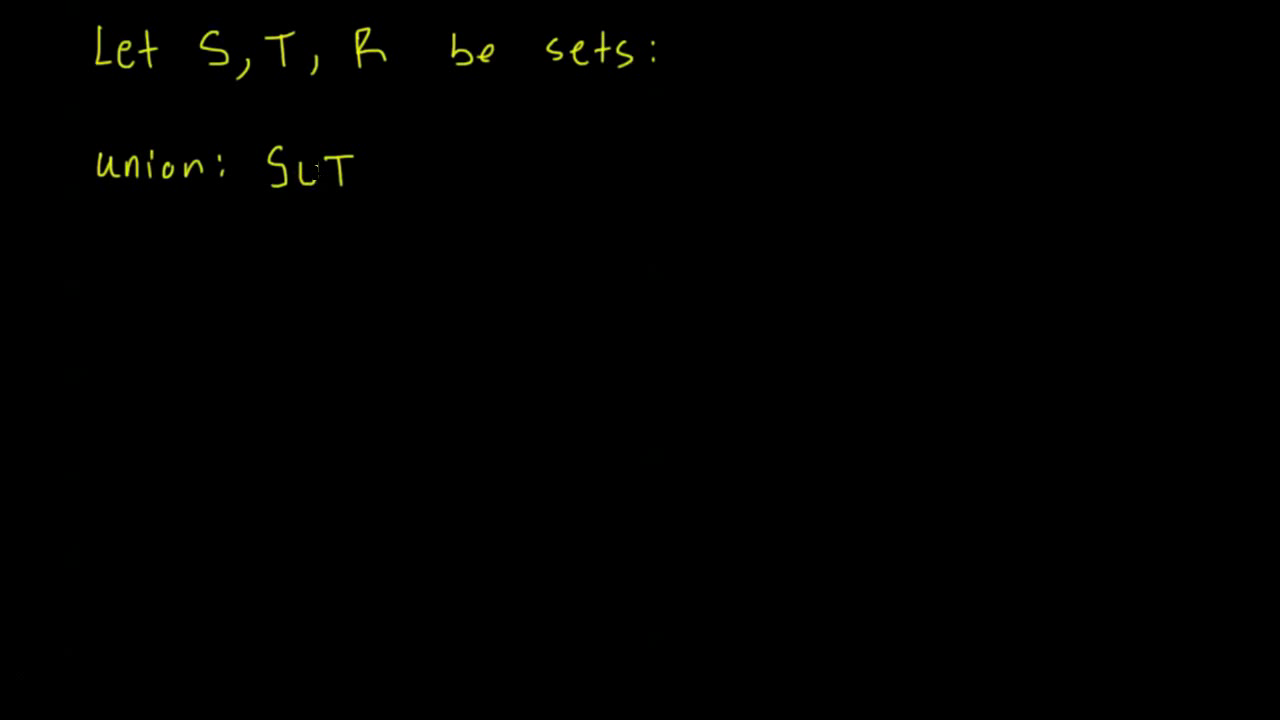 Let S, T, R be sets:
union: S∪T